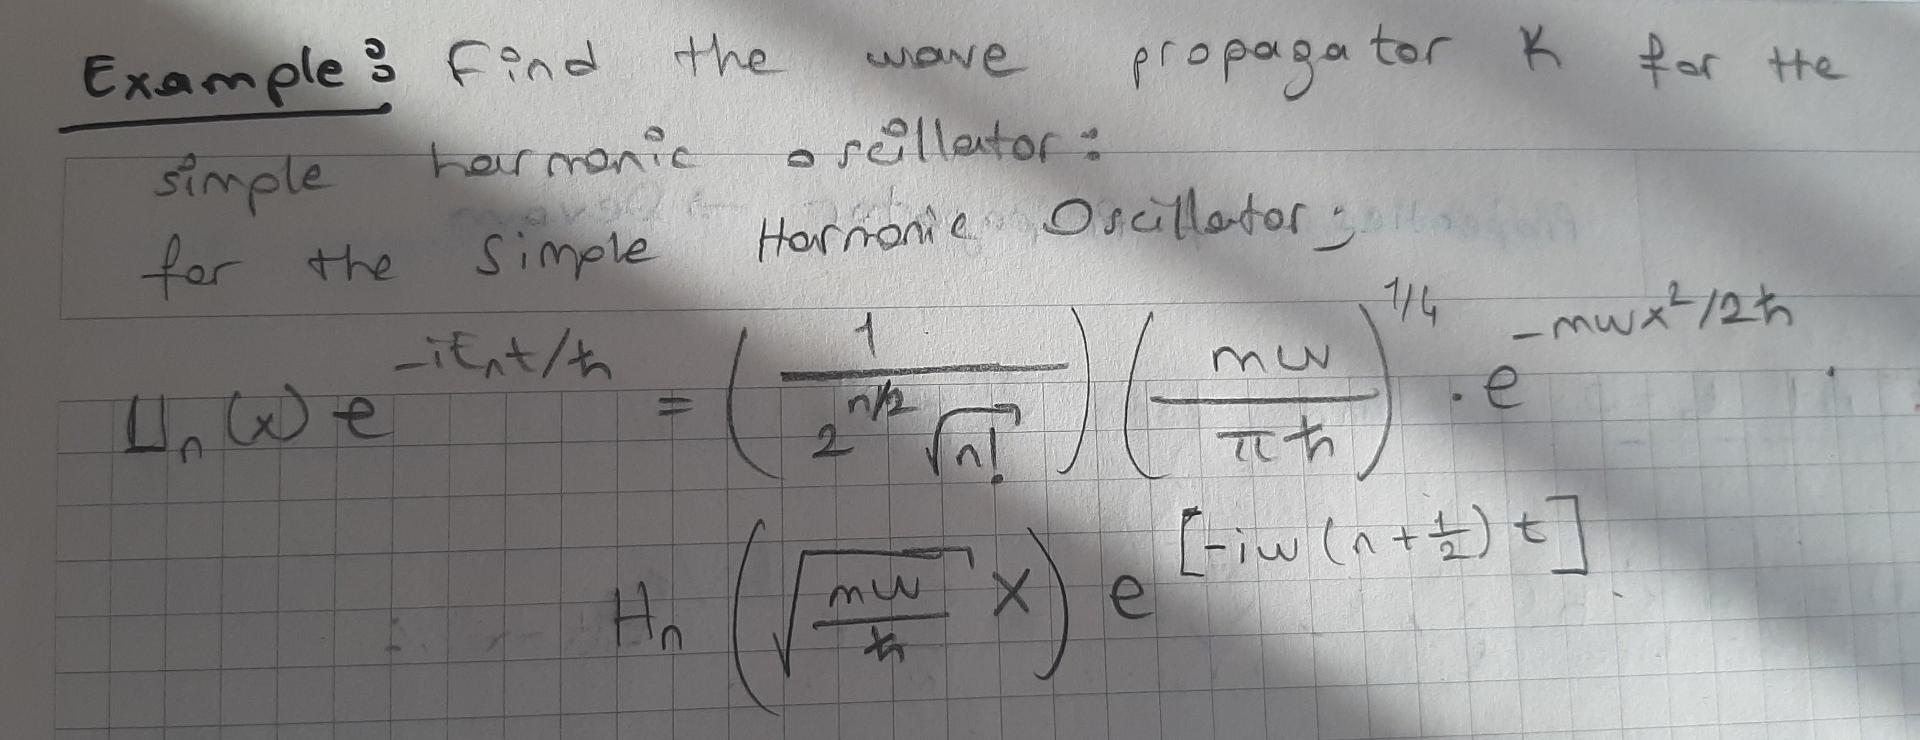 Example: Find the wave propagator K for the
simple harmonic oscillator:
for the Simple Harmonic Oscillator;
U_n(x) e^{-iE_nt/ħ} = (1 / 2^{n/2} √n!) (mω / πħ)^{1/4} . e^{-mωx²/2ħ}
H_n (√(mω/ħ) x) e^{[-iω(n+1/2)t]}